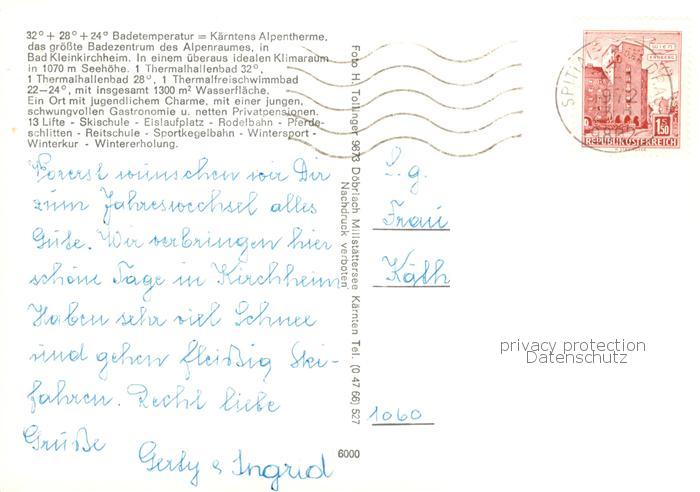 32° + 28° + 24° Badetemperatur = Kärntens Alpentherme,
das größte Badezentrum des Alpenraumes, in
Bad Kleinkirchheim. In einem überaus idealen Klimaraum
in 1070 m Seehöhe. 1 Thermalhallenbad 32°,
1 Thermalhallenbad 28°, 1 Thermalfreischwimmbad
22—24°, mit insgesamt 1300 m² Wasserfläche.
Ein Ort mit jugendlichem Charme, mit einer jungen,
schwungvollen Gastronomie u. netten Privatpensionen.
13 Lifte - Skischule - Eislaufplatz - Rodelbahn - Pferde-
schlitten - Reitschule - Sportkegelbahn - Wintersport -
Winterkur - Wintererholung.
Vorerst wünschen wir Dir
zum Jahreswechsel alles
Gute. Wir verbringen hier
schöne Tage in Kirchheim
Haben sehr viel Schnee
und gehen fleißig Ski-
fahren. Recht liebe
Grüße
Gerty & Ingrid
Foto H. Tollinger 9873 Döbriach Millstättersee Kärnten Tel. (0 47 66) 527
Nachdruck verboten
6000
S.g.
Frau
Käth
1060
privacy protection
Datenschutz
WIEN
1.50
REPUBLIK ÖSTERREICH